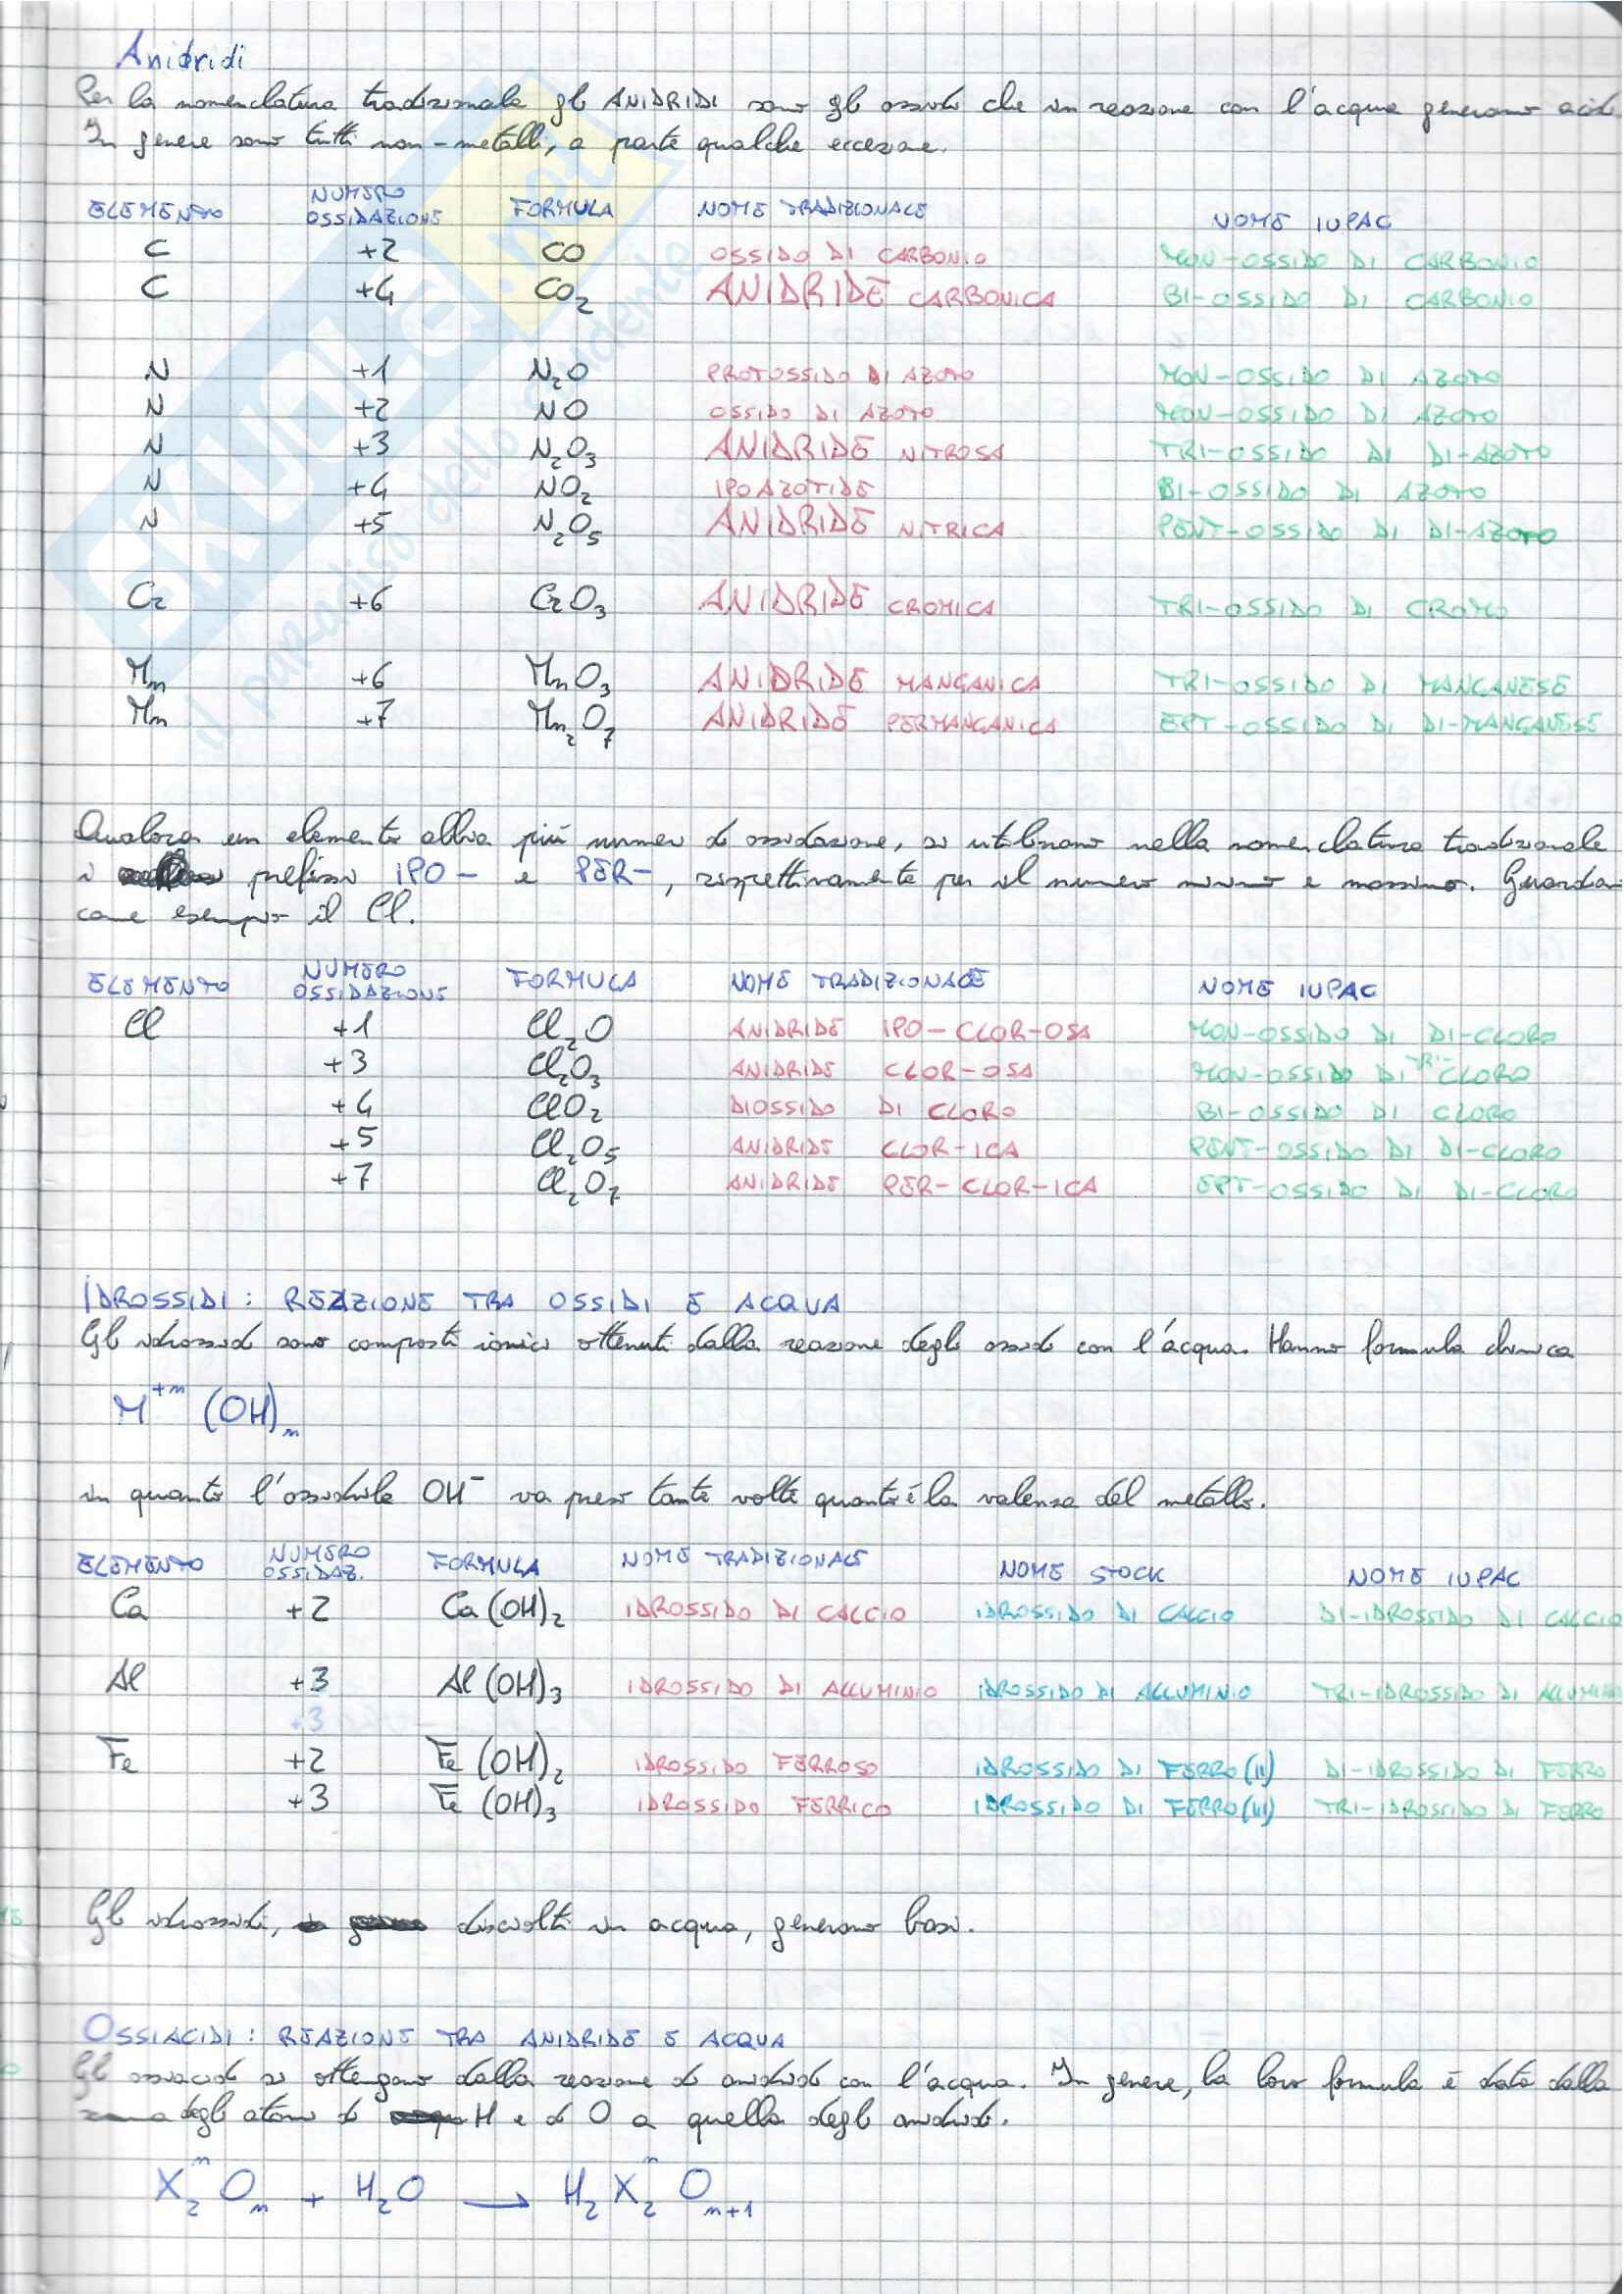 Anidridi
Per la nomenclatura tradizionale gli ANIDRIDI sono gli ossidi che in reazione con l'acqua generano acidi
In genere sono tutti non-metalli, a parte qualche eccezione.
ELEMENTO NUMERO OSSIDAZIONE FORMULA NOME TRADIZIONALE NOME IUPAC
C +2 CO OSSIDO DI CARBONIO MON-OSSIDO DI CARBONIO
C +4 CO₂ ANIDRIDE CARBONICA BI-OSSIDO DI CARBONIO
N +1 N₂O PROTOSSIDO DI AZOTO MON-OSSIDO DI AZOTO
N +2 NO OSSIDO DI AZOTO MON-OSSIDO DI AZOTO
N +3 N₂O₃ ANIDRIDE NITROSA TRI-OSSIDO DI DI-AZOTO
N +4 NO₂ IPOAZOTIDE BI-OSSIDO DI AZOTO
N +5 N₂O₅ ANIDRIDE NITRICA PENT-OSSIDO DI DI-AZOTO
Cr +6 CrO₃ ANIDRIDE CROMICA TRI-OSSIDO DI CROMO
Mn +6 MnO₃ ANIDRIDE MANGANICA TRI-OSSIDO DI MANGANESE
Mn +7 Mn₂O₇ ANIDRIDE PERMANGANICA EPT-OSSIDO DI DI-MANGANESE
Qualora un elemento abbia più numeri di ossidazione, si utilizzano nella nomenclatura tradizionale
i prefissi IPO- e PER-, rispettivamente per il numero minimo e massimo. Guardiamo
come esempio il Cl.
ELEMENTO NUMERO OSSIDAZIONE FORMULA NOME TRADIZIONALE NOME IUPAC
Cl +1 Cl₂O ANIDRIDE IPO-CLOR-OSA MON-OSSIDO DI DI-CLORO
+3 Cl₂O₃ ANIDRIDE CLOR-OSA MON-OSSIDO DI TRI-CLORO
+4 ClO₂ DIOSSIDO DI CLORO BI-OSSIDO DI CLORO
+5 Cl₂O₅ ANIDRIDE CLOR-ICA PENT-OSSIDO DI DI-CLORO
+7 Cl₂O₇ ANIDRIDE PER-CLOR-ICA EPT-OSSIDO DI DI-CLORO
IDROSSIDI: REAZIONE TRA OSSIDI E ACQUA
Gli idrossidi sono composti ionici ottenuti dalla reazione degli ossidi con l'acqua. Hanno formula chimica
M⁺ⁿ (OH)ₙ
in quanto l'ossidrile OH⁻ va preso tante volte quanto è la valenza del metallo.
ELEMENTO NUMERO OSSIDAZ. FORMULA NOME TRADIZIONALE NOME STOCK NOME IUPAC
Ca +2 Ca(OH)₂ IDROSSIDO DI CALCIO IDROSSIDO DI CALCIO DI-IDROSSIDO DI CALCIO
Al +3 Al(OH)₃ IDROSSIDO DI ALLUMINIO IDROSSIDO DI ALLUMINIO TRI-IDROSSIDO DI ALLUMINIO
+3
Fe +2 Fe(OH)₂ IDROSSIDO FERROSO IDROSSIDO DI FERRO(II) DI-IDROSSIDO DI FERRO
+3 Fe(OH)₃ IDROSSIDO FERRICO IDROSSIDO DI FERRO(III) TRI-IDROSSIDO DI FERRO
Gli idrossidi, disciolti in acqua, generano basi.
OSSIACIDI: REAZIONE TRA ANIDRIDE E ACQUA
Gli ossiacidi si ottengono dalla reazione di anidridi con l'acqua. In genere, la loro formula è data dalla
degli atomi di H e di O a quella degli anidridi.
X₂ⁿOₙ + H₂O → H₂X₂ⁿOₙ₊₁
SKUOLA.net
il paradiso dello studente